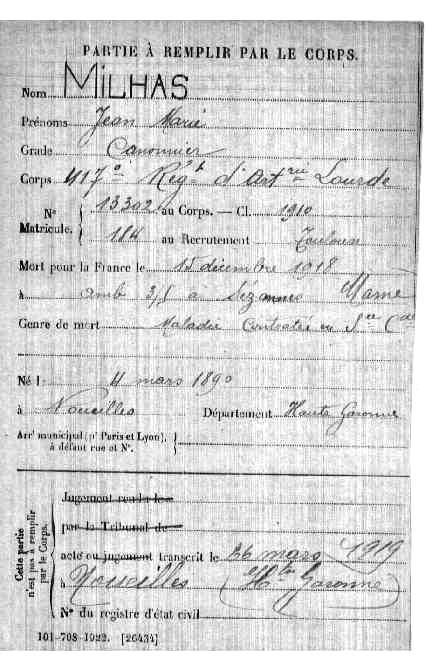 PARTIE À REMPLIR PAR LE CORPS.
Nom MILHAS
Prénoms Jean Marie
Grade Canonnier
Corps 417e Rég-t d'Artrie Lourde
N° Matricule. { 13302 au Corps. — Cl. 1910
114 au Recrutement Toulouse
Mort pour la France le 15 décembre 1918
à amb 3/1 a Sézanne Marne
Genre de mort Maladie Contractée en Sce Cdé
Né le 4 mars 1890
à Noueilles Département Haute Garonne
Arrt municipal (pr Paris et Lyon), à défaut rue et N°. }
Cette partie n'est pas à remplir par le Corps. {
Jugement rendu le
par le Tribunal de
acte ou jugement transcrit le 26 mars 1919
à Noueilles (Hte Garonne)
N° du registre d'état civil
101-708-1922. [26434]